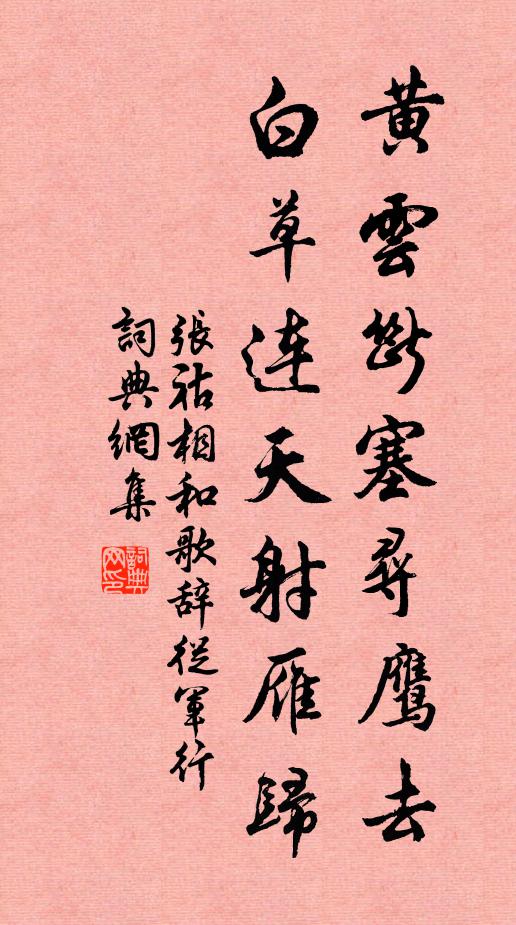 黃雲斷塞尋鷹去
白草連天射雁歸
張祜相和歌辭從軍行
詞典網集
詞典網印